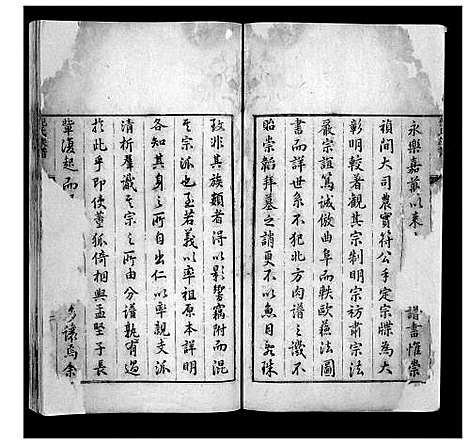 永樂嘉 以来 譜書惟崇
禎间大司農寳符公手定宗牒為大
彰明較著觀其宗制明宗訪肅宗法
嚴宗誼篤誠倣曲阜而軼歐蘇法圖
書而詳世系不犯北方肉譜之譏不
貽崇韜拜墓之誚更不以魚目 珠
致非其族類者得以影響竊附而混
其宗派也至若義以率祖原本詳明
各知其身之所自出仁以率親支派
清析羣識其宗之所由分譜孰有過
於此乎即使董狐倚相與孟堅子長
輩復起而 讓焉余